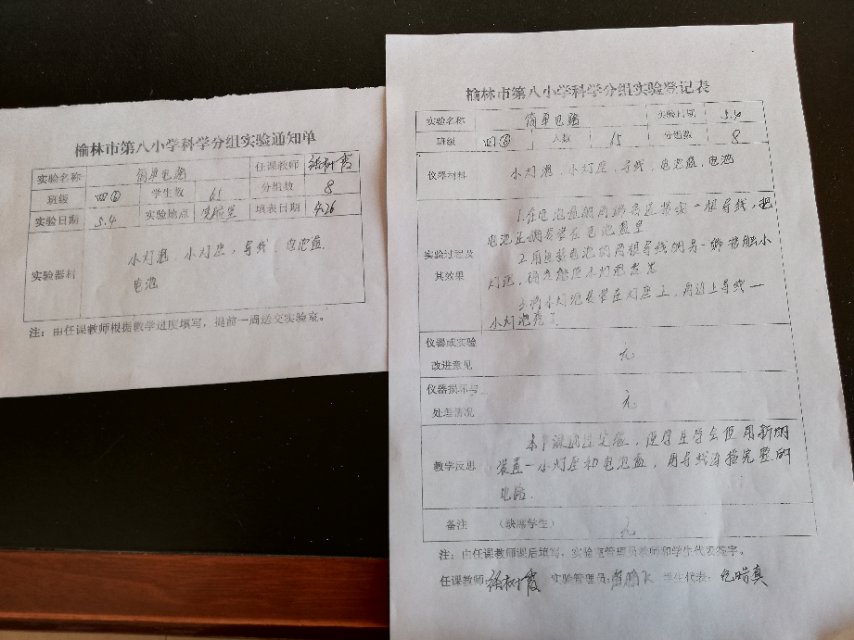 榆林市第八小学科学分组实验通知单
实验名称 简单电路 任课教师
班级 四② 学生数 65 分组数 8
实验日期 5.4 实验地点 实验室 填表日期 4.26
实验器材 小灯泡、小灯座、导线、电池盒、
电池
注：由任课教师根据教学进度填写，提前一周送交实验室。
榆林市第八小学科学分组实验登记表
实验名称 简单电路 实验日期 5.4
班级 四② 人数 65 分组数 8
仪器材料 小灯泡、小灯座、导线、电池盒、电池
实验过程及
其效果
1.在电池盒的两端各连接好一根导线，把
电池正确安装在电池盒里
2.用连接电池的两根导线的另一端接触小
灯泡，确定能使小灯泡发光
3.将小灯泡安装在灯座上，再连上导线一
小灯泡亮了
仪器或实验
改进意见 无
仪器损坏与
处理情况 无
教学反思 本节课通过实验，使学生学会使用新的
装置—小灯座和电池盒，用导线连接完整的
电路.
备注 （缺席学生） 无
注：由任课教师课后填写，实验室管理员教师和学生代表签字。
任课教师 实验管理员: 学生代表: